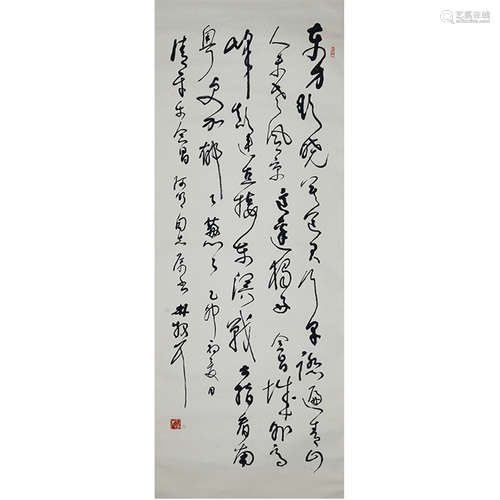 东方欲晓莫道君行早踏遍青山
人未老风景这边独好会昌城外高
峰颠连直接东溟战士指看南
粤更加郁々葱々乙卯初夏日
清平乐会昌
艺狐在线